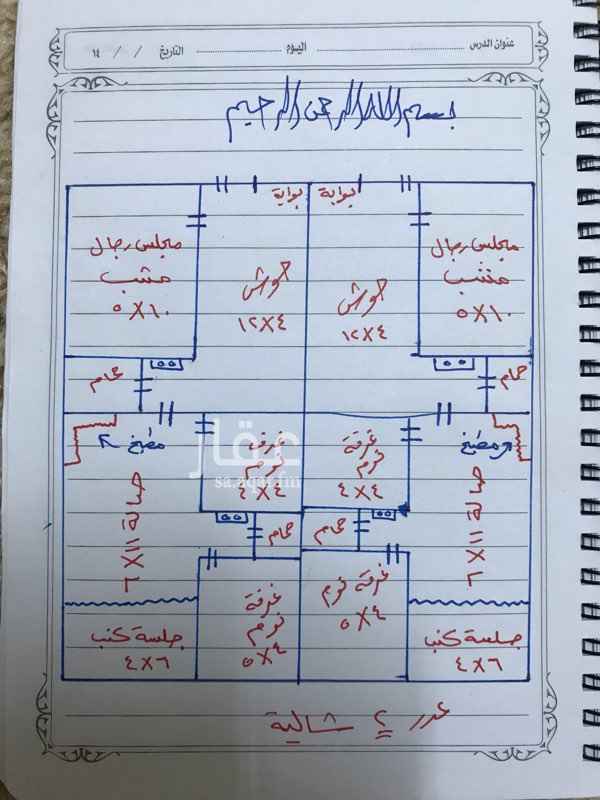 عنوان الدرس اليوم التاريخ / / ١٤
بسم الله الرحمن الرحيم
بوابة
بوابة
مجلس رجال
مشب
٥X١٠
حوش
١٢X٤
حوش
١٢X٤
مجلس رجال
مشب
٥X١٠
حمام
حمام
مطبخ
غرفة
نوم
٤X٤
غرفة
نوم
٤X٤
مطبخ
صالة ١١X٦
صالة ١١X٦
حمام
حمام
غرفة نوم
٥X٤
غرفة
نوم
٥X٤
جلسة كنب
٤X٦
جلسة كنب
٤X٦
شالية
عقار
sa.aqar.fm